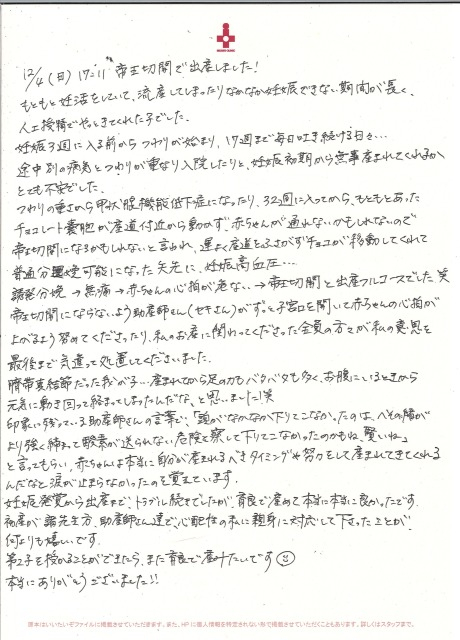 12/4(日) 17:11 帝王切開で出産しました!
もともと妊活をしていて、流産してしまったりなかなか妊娠できない期間が長く、
人工授精でやってきてくれた子でした。
妊娠3週に入る前からつわりが始まり、17週まで毎日吐き続ける日々…
途中別の病気とつわりが重なり入院したりと、妊娠初期から無事産まれてくれるか
とても不安でした。
つわりの重さから甲状腺機能低下症になったり、32週に入ってから、もともとあった
チョコレート嚢胞が産道付近から動かず、赤ちゃんが通れないかもしれないので
帝王切開になるかもしれないと言われ、運よく産道をふさがずチョコが移動してくれて
普通分娩可能になった矢先に、妊娠高血圧…
誘発分娩→無痛→赤ちゃんの心拍が危ない→帝王切開と出産フルコースでした 笑
帝王切開にならないよう助産師さん(セキさん)がずっと子宮口を開いて赤ちゃんの心拍が
上がるよう努めてくださったり、私のお産に関わってくださった全員の方々が私の意思を
最後まで気遣って処置してくださいました。
臍帯真結節だった我が子…産まれてから足の力もバタバタも多く、お腹にいるときから
元気に動き回って絡まってしまったんだな、と思いました!笑
印象に残っている助産師さんの言葉で、「頭がなかなか下りてこなかったのは、へその緒が
より強く締まって酸素が送られない危険と察して下りてこなかったのかもね、賢いね」
と言ってもらい、赤ちゃんは本当に自分が産まれるべきタイミングや努力をして産まれてきてくれる
んだなと涙が止まらなかったのを覚えています。
妊娠発覚から出産まで、トラブル続きでしたが、育良で産めて本当に本当に良かったです。
初産が諸先生方、助産師さん達で、心配性の私に親身に対応して下さったことが
何よりも嬉しいです。
第2子を授かることができたら、また育良で産みたいです
本当にありがとうございました!!
原本はいいたいぞファイルに掲載させていただきます。また、HPに個人情報を特定されない形で掲載させていただくこともあります。詳しくはスタッフまで。